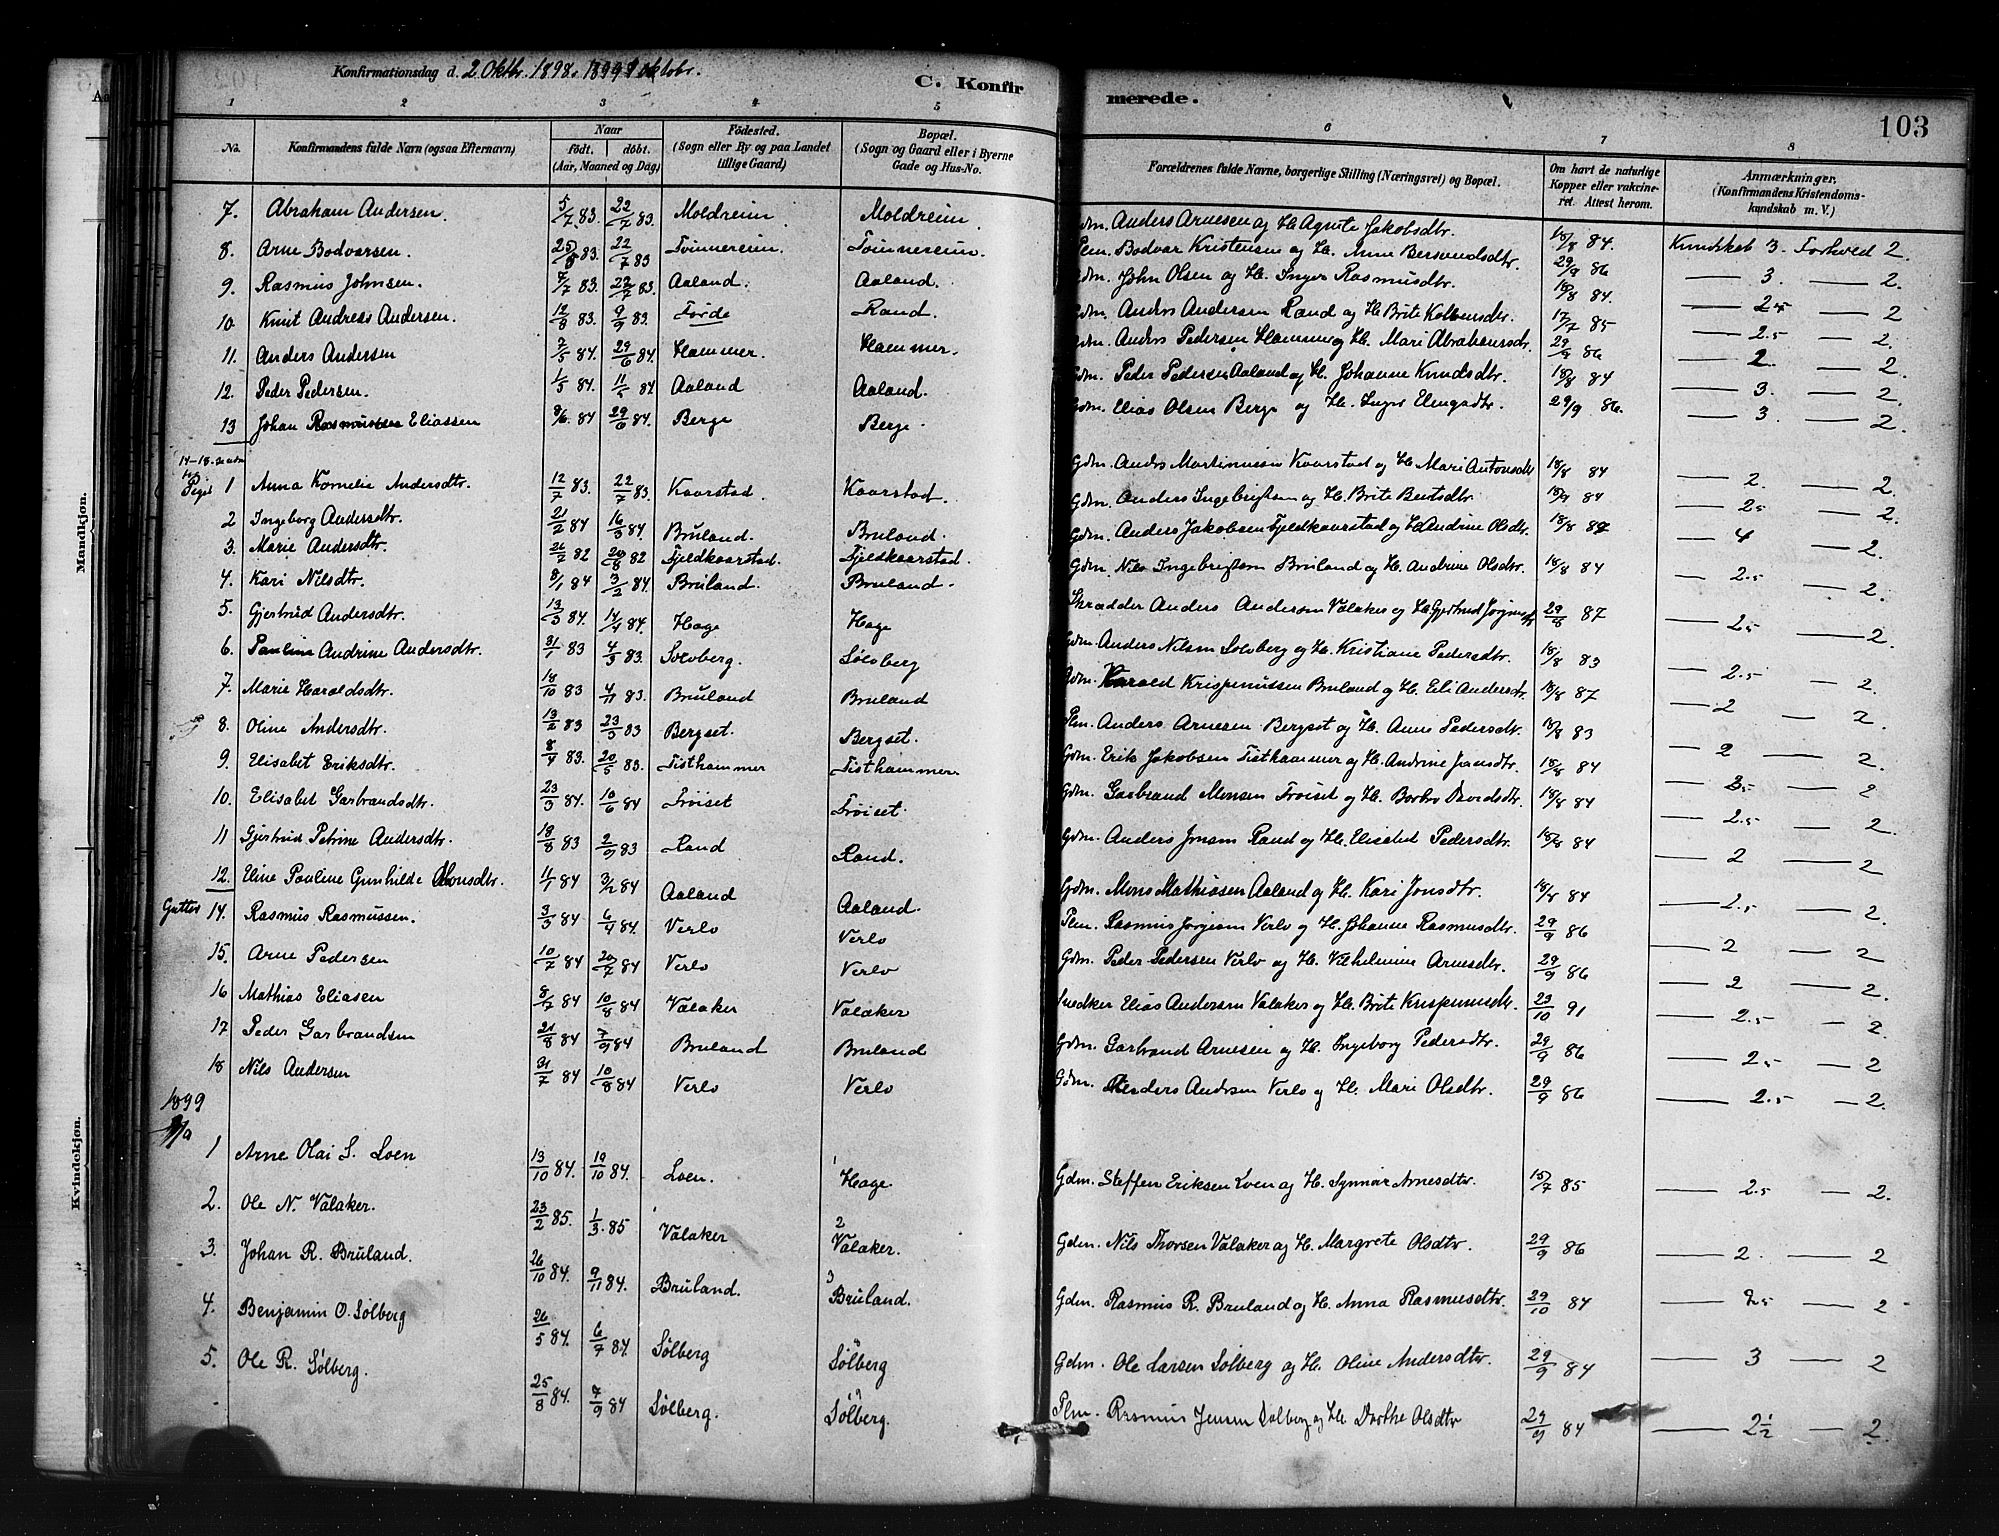 Konfirmationsdag d. 2 Oktbr. 1898. 1899 1 oktobr.
C. Konfirmerede.
103
1 2 3 4 5 6 7 8
No. Konfirmandens fulde Navn (ogsaa Efternavn) Naar Födt. döbt. (Aar, Maaned og Dag) Födested. (Sogn eller By og paa Landet tillige Gaard) Bopæl. (Sogn og Gaard eller i Byerne Gade og Hus-No. Forældrenes fulde Navne, borgerlige Stilling (Næringsvei) og Bopæl. Om havt de naturlige Kopper eller vakcineret. Attest herom. Anmærkninger. (Konfirmandens Kristendomskundskab m. V.)
7. Abraham Andersen. 5/7 83. 22/7 83. Moldreim Moldreim. Gdm. Anders Arnesen og H. Agnete Jakobsdtr. 18/8 84. Kundskab 3. Forhved 2.
8. Arne Bodvarsen. 25/6 83. 22/7 83 Tvinnereim Tvinnereim. Plm. Bodvar Kristensen og H. Anne Bersvendsdtr. 29/9 86 — 3. — 2.
9. Rasmus Johnsen. 7/7 83. 22/7 83. Aaland. Aaland. Gdm. John Olsen og H. Inger Rasmusdtr. 18/8 84. — 2.5 — 2
10. Knut Andreas Andersen. 12/8 83. 9/9 83. Förde Rand. Gdm. Anders Andersen Rand og H. Brite Kolbensdtr. 17/7 85 — 2.5 — 2.
11. Anders Andersen 7/5 84. 29/6 84. Hammer. Hammer. Gdm. Anders Pedersen Hammer og H. Mari Abrahamsdr. 29/9 86 — 2. — 2.
12. Peder Pedersen. 1/5 84. 11/5 84 Aaland Aaland. Gdm. Peder Pedersen Aaland og H. Johanne Knudsdtr. 18/8 84 — 3. — 2.
13 Johan Rasmussen Eliassen 8/6. 84 29/6 84. Berge Berge. Gdm. Elias Olsen Berge og H. Inger Elingsdtr. 29/9 86. — 3. — 2.
14-18. se nedn
Piger 1 Anna Kornelia Andersdtr. 12/7 83. 22/7 83. Kaarstad. Kaarstad. Gdm. Andrs Martinusen Kaarstad og H. Mari Antonsdr 18/8 84 — 2. — 2.
2 Ingeborg Andersdtr. 21/2 84 16/3 84. Bruland. Bruland. Gdm. Anders Ingebrigtsen og H. Brite Bentsdtr. 18/9 84 — 2.5 — 2.
3. Marie Andersdtr. 21/7 82 20/8 82 Fjeldkaarstad. Fjeldkaarstad. Gdm. Anders Jakobsen Fjeldkaarstad og H. Andrine Olsdtr. 18/8 87 — 4 — 2.
4. Kari Nilsdtr. 8/1 84 3/2 84. Bruland. Bruland. Gdm. Nils Ingebrigtsen Bruland og H. Andrine Olsdtr. 18/8 84 — 2.5 — 2.
5. Gjertrud Andersdtr. 13/3 84. 14/4 84. Hage Hage Skrædder Anders Andersen Valaker og H. Gjertrud 29/8 87 — 2.5 — 2.
6. Pauline Andrine Andersdtr. 31/1 83 4/3 83. Solvberg. Sølvberg Gdm. Anders Nilsen Solvberg og H. Kristiane Pedersdtr. 18/8 83 — 2.5 — 2.
7. Marie Haraldsdtr. 18/10 83 4/11 83. Bruland Bruland Gdm. Harald Krispinussen Bruland og H. Eli Andersdtr 18/8 87 — 2 — 2.
8. Oline Andersdtr. 13/2 83 23/3 83 Bergset Bergset. Plm. Anders Arnesen Bergset og H. Anne Pedersdtr. 18/8 83 — 2 — 2.
9. Elisabet Eriksdtr. 8/4 83. 20/5 83. Tisthammer Tisthammer. Gdm. Erik Jakobsen Tisthammer og H. Andrine Jonsdtr. 18/8 84 — 2.5 — 2
10. Elisabet Garbrandsdtr. 23/3 84. 10/6 84 Trøiset Trøiset. Gdm. Garbrand Monsen Trøiset og H. Barbro Davidsdtr. 18/8 84 — 2.5 — 2.
11 Gjertrud Petrine Andersdtr. 18/8 83 2/9 83 Rand Rand. Gdm. Anders Jonsen Rand og H. Elisabet Pedersdtr. 18/8 84 — 2 — 2
12. Eline Pauline Gunhilde Monsdtr. 11/1 84 3/2 84 Aaland Aaland. Gdm. Mons Mathiasen Aaland og H. Kari Jonsdtr. 18/8 84 — 2.5 — 2.
Gutter 14. Rasmus Rasmussen. 3/3 84 6/4 84. Verlo Verlo Plm. Rasmus Jørgensen Verlo og H. Johanne Rasmusdtr. 29/9 86 — 2 — 2
15. Arne Pedersen 10/7 84 20/7 84 Verlo Verlo Gdm. Peder Pedersen Verlo og H. Vilhelmine Arnesdtr. 29/9 86 — 2 — 2.
16 Mathias Eliasen 8/7 84 10/8 84 Valaker Valaker Snedker Elias Andersen Valaker og H. Brite Krispinusdtr. 23/10 91 — 2.5 — 2.
17 Peder Garbrandsen 21/8 84 7/9 84 Bruland Bruland Gdm. Garbrand Arnesen og H. Ingeborg Pedersdtr. 29/9 86 — 2.5 — 2
18 Nils Andersen 31/7 84 10/8 84 Verlo Verlo Gdm. Anders Andrsen Verlo og H. Mari Olsdtr. 29/9 86 — 2.5 — 2.
1899
1 Arne Olai S. Loen 13/10 84. 19/10 84. Loen. 1 Hage Gdm. Steffen Eriksen Loen og H. Synnør Arnesdtr. 15/7 85 — 2.5 — 2.
2. Ole N. Valaker. 23/2 85. 1/3. 85 Valaker 2 Valaker. Gdm. Nils Thorsen Valaker og H. Margrete Olsdtr. 29/9 86 — 2. — 2
3. Johan R. Bruland. 26/10 84. 9/11 84. Bruland. 3 Bruland. Gdm. Rasmus R. Bruland og H. Anna Rasmusdtr. 29/10 84 — 2.5 — 2
4. Benjamin O. Sølberg 26/5 84. 6/7 84. Sølberg Sølberg Gdm. Ole Larsen Solberg og H. Oline Andersdtr. 29/9 84 — 3 — 2
5. Ole R. Sølberg. 25/8 84. 7/9 84 Sølberg. Sølberg. Plm. Rasmus Jensen Sølberg og H. Dorthe Olsdtr 29/9 84 — 2½ — 2.
Mandkjøn.
Kvindekjøn.